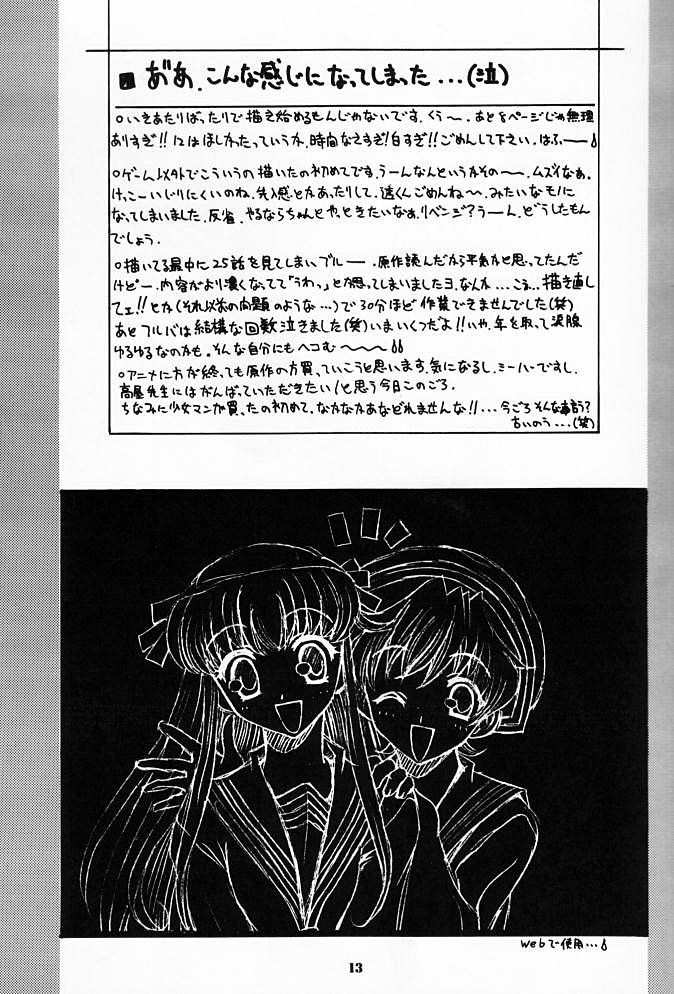 おあ、こんな感じになってしまった...(泣)
○いきあたりばったりで描き始めるもんじゃないです.くぅ〜.あと8ページじゃ無理
ありすぎ!!12はほしかったっていうか,時間なさすぎ!白すぎ!!ごめんして下さい.はふ〜
○ゲーム以外でこういうの描いたの初めてです.うーんなんというかその〜.ムズイなぁ.
けっこーいじりにくいのね.先入感とかあったりして.透くんごめんね〜.みたいなモノに
なってしまいました.反省.やるならちゃんとやっときたいなぁ.リベンジ?うーん.どうしたもん
でしょう.
○描いてる最中に25話を見てしまい、ブルー.原作読んだから平気かと思ってたんだ
けどー.内容がより濃くなってて「うわっ」とか思ってしまいましたヨ.なんか...こう...描き直し
てェ!!とか(それ以前の問題のような...)で30分ほど作業できませんでした(笑)
あとフルバは結構な回数泣きました(笑)いまいくつだよ!!いや.年を取って涙腺
ゆるゆるなのかも.そんな自分にもヘコむ〜
○アニメに方が終っても原作の方買っていこうと思います.気になるし.ミーハーですし.
高屋先生にはがんばっていただきたい!と思う今日このごろ.
ちなみに少女マンガ買ったの初めて.なかなかあなどれませんな!!...今ごろそんな事言う?
ちいのう...(笑)
Webで使用...
13